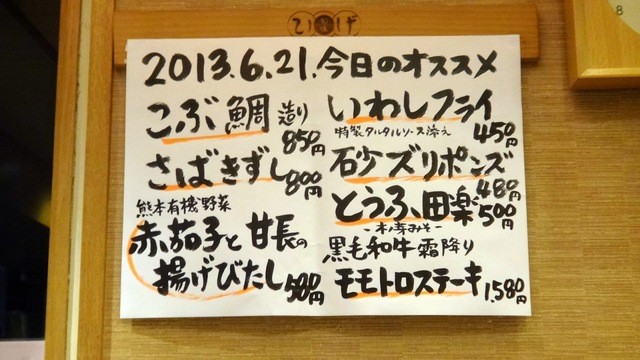 ひげ
2013.6.21.今日のオススメ
こぶ鯛 造り
850円
さばきずし
800円
熊本有機野菜
赤茄子と甘長の
揚げびたし 500円
いわしフライ
特製タルタルソース添え 450円
砂ズリポンズ
480円
とうふ田楽
500円
-木ノ芽みそ-
黒毛和牛霜降り
モモトロステーキ 1,580円
8